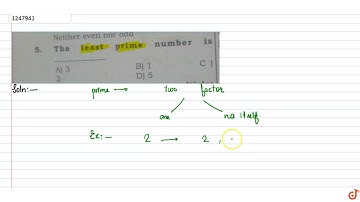 1247941
Neither even nor odd
5. The least prime number is
A) 3 B) 1 C )
2 D) 5
Soln:- prime → two factor
one na itself.
Ex:- 2 → 2 ,